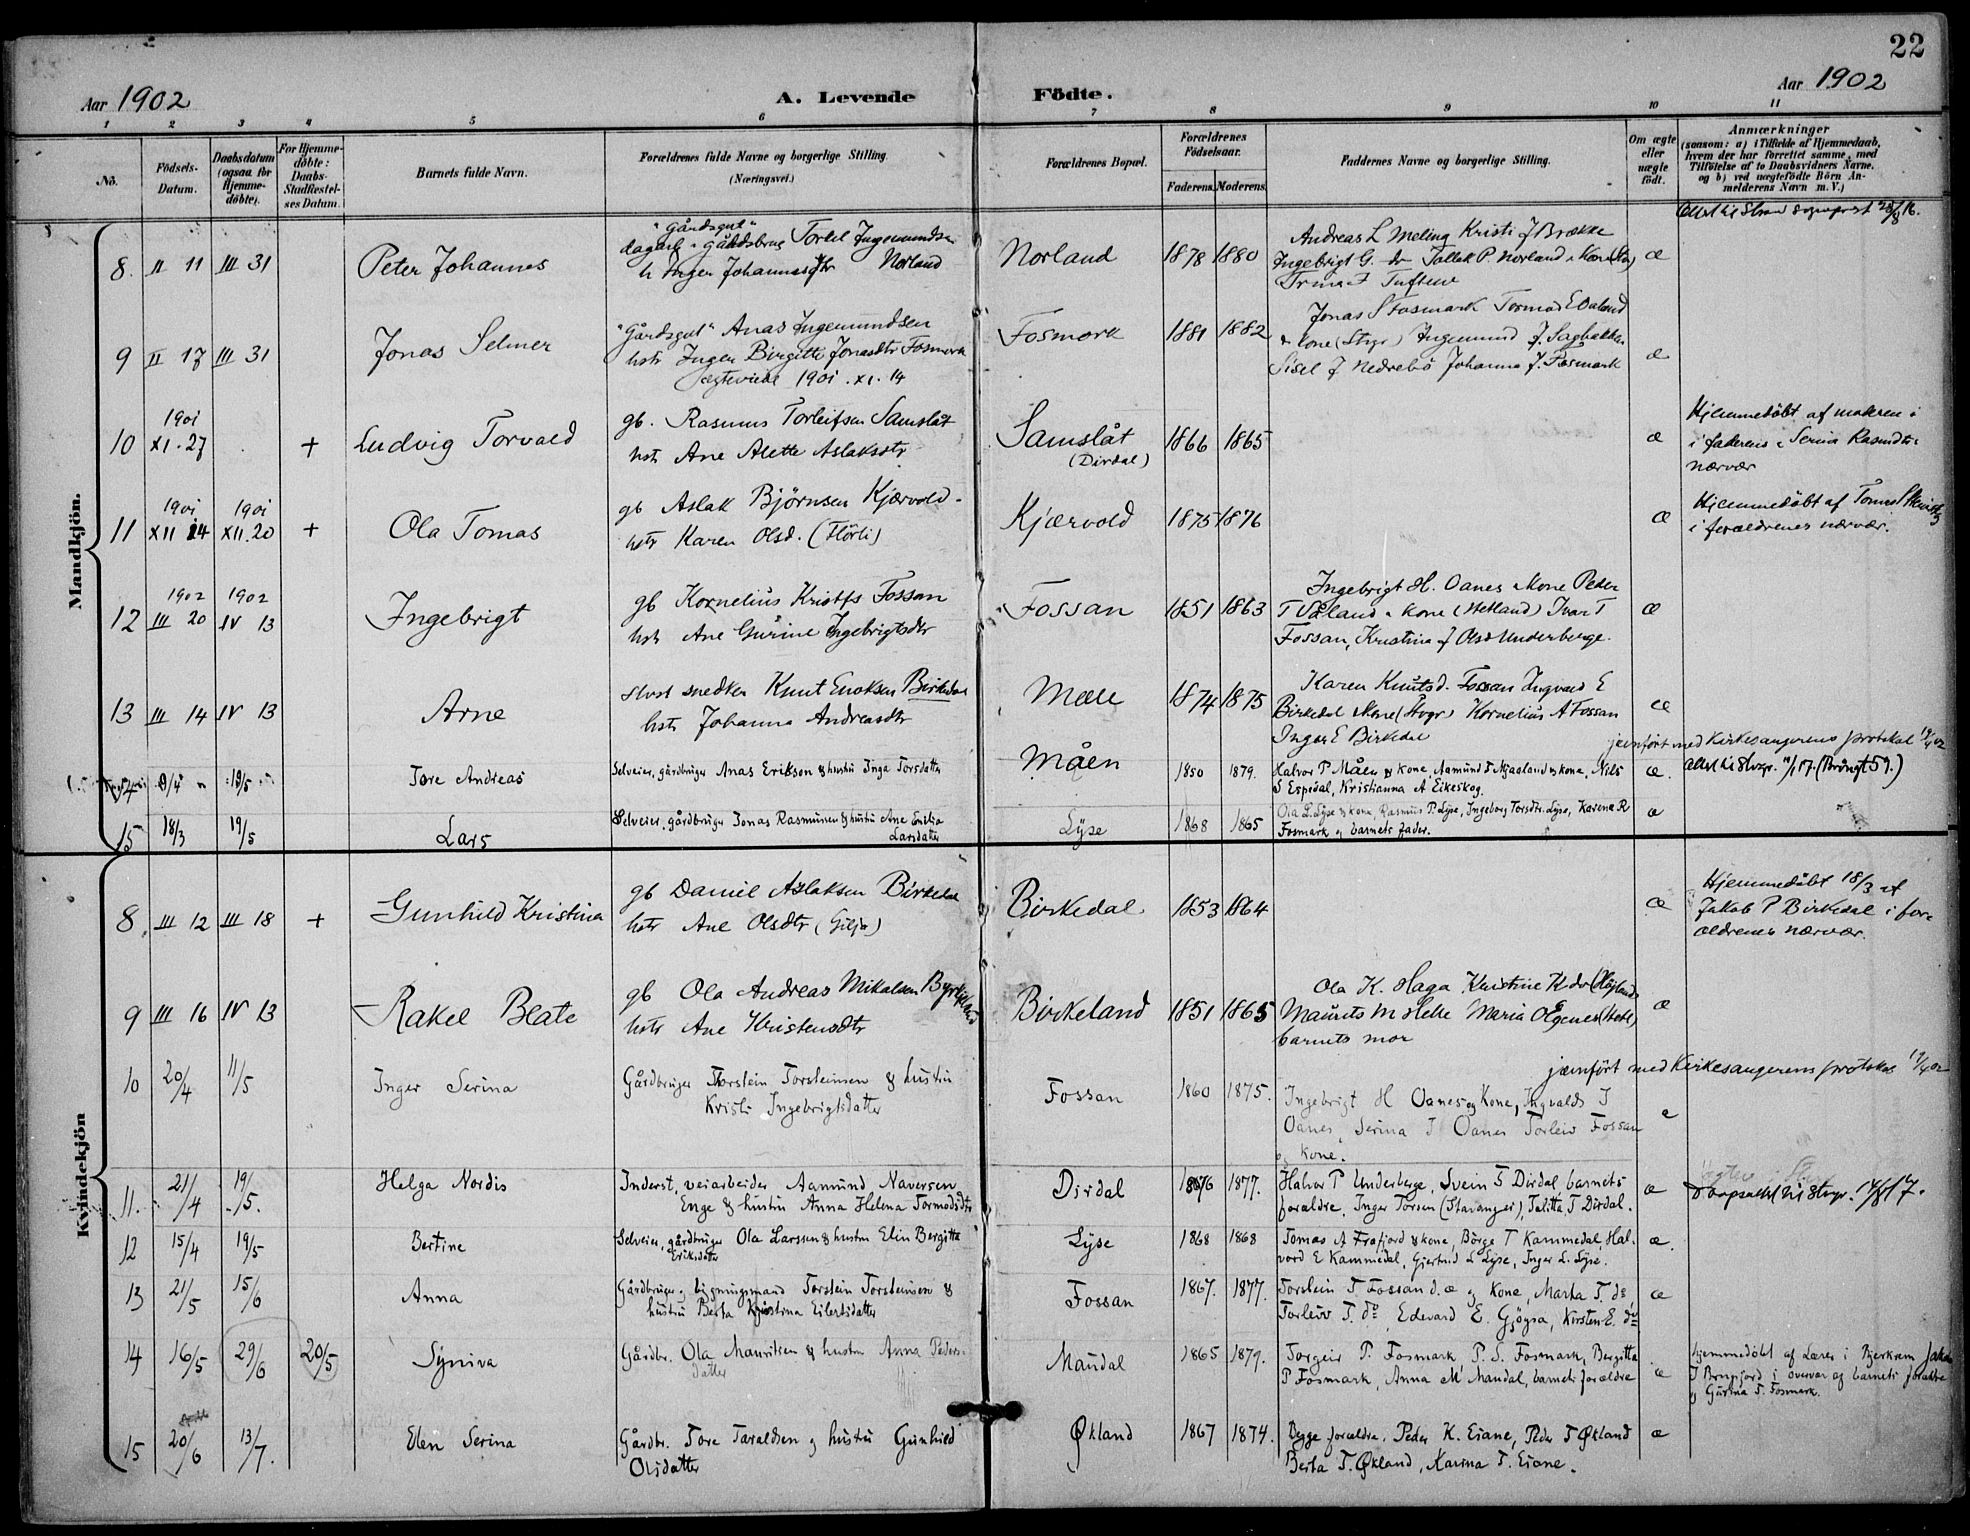 22
Aar 1902
A. Levende Födte.
Aar 1902
1 2 3 4 5 6 7 8 9 10 11
No.
Födsels-Datum.
Daabsdatum (ogsaa for Hjemme-döbte).
For Hjemme-döbte: Daabs-Stadfestel-ses Datum.
Barnets fulde Navn.
Forældrenes fulde Navne og borgerlige Stilling. (Næringsvei.)
Forældrenes Bopæl.
Forældrenes Födselsaar.
Faderens. Moderens.
Faddernes Navne og borgerlige Stilling.
Om ægte eller uægte födt.
Anmærkninger
(saasom: a) i Tilfælde af Hjemmedaab, hvem der har forrettet samme, med Tilföielse af to Daabsvidners Navne, og b) ved uægtefödte Börn An-melderens Navn m.V.)
Mandkjön.
8. II 11 III 31 Peter Johannes
"Gårdsgut"
Torlel Ingemundsen
Norland
Norland 1878 1880
Andreas L Meling Kristi J Brække
Ingebrigt G. do Tallak P. Norland
æ
9 II 17 III 31 Jonas Selmer
"Gårdsgut" Anas Ingemundsen
hstr Inger Birgitte Jonasdtr Fosmork
Ægteviede 1901. XI. 14
Fosmork 1881 1882
Jonas S Fosmark Tormod E Daland
& kone (Stvgr) Ingemund J. Sagbakken
Sisel J Nedrebö Johanna J. Fosmark
æ
10 1901 XI. 27 + Ludvig Torvald
gb. Rasmus Torleifsen Samslåt
hstr Ane Alette Aslaksdtr
Samslåt (Dirdal) 1866 1865 æ
Hjemmedöbt af moderen i
faderens & Serina Rasmdtrs
nærvær
11 1901 XII 14 1901 XII. 20 + Ola Tomas
gb Aslak Björnsen Kjærvold
hstr Karen Olsd. (Flörli)
Kjærvold 1875 1876 æ
Hjemmedöbt af
i forældrenes nærvær.
12 1902 III 20 1902 IV 13 Ingebrigt
gb Kornelius Kristfs Fossan
hstr Ane Gurine Ingebrigtsdtr
Fossan 1851 1863
Ingebrigt H. Oanes & kone Peder
T Våland & kone (Hetland) Ivar T
Fossan, Kristina J Olsd Underberge.
æ
13 III 14 IV 13 Arne
snedker Knut Enoksen Birkedal
hstr Johanna Andreasdtr
Mæle 1874 1875
Karen Knutsd. Fossan Ingvald E
Birkedal & kone (Stvgr) Kornelius A Fossan
Inger E Birkedal
æ
jævnfört med Kirkesangerens protokol
14 19/5 Tore Andreas
Selveier, gårdbruger Anas Erikson & hustru Inga Torsdatter
Måen 1850 1879.
Halvor P Måen & kone, Aamund T Mjaaland & kone, Nils
S Espedal, Kristianna A Eikeskog.
æ.
15 18/3 19/5 Lars
Selveier, gårdbruger Jonas Rasmussen & hustru Ane Emilia
Larsdatter
Lyse 1868 1865
Ola L. Lyse & kone, Rasmus P. Lyse, Ingeborg Torsdtr. Lyse, Karena R
Fosmark og barnets fader.
æ
Kvindekjön
8 III 12 III 18 + Gunhild Kristina
gb Daniel Aslaksen Birkedal
hstr Ane Olsdtr (Gilja)
Birkedal 1853 1864 æ
Hjemmedöbt 18/3 af
Jakob P Birkedal i for-
ældrenes nærvær.
9 III 16 IV 13 Rakel Beate
gb Ola Andreas Mikalsen Byrkjeland
hstr Ane Kristensdtr
Birkeland 1851 1865
Ola K. Haga Kristine K do (Högsland)
Maurits M Helle Maria O Egenes (Hetl)
barnets mor
æ
jævnfört med Kirkesangerens protokol
10 20/4 11/5 Inger Serina
Gårdbruger Torstein Torsteinsen & hustru
Kristi Ingebrigtsdatter
Fossan 1860 1875.
Ingebrigt H Oanes og Kone, Ingvalds I
Oanes, Serina I Oanes Torleiv Fossan
og kone.
æ
11. 21/4 19/5. Helga Nordis
Inderst, veiarbeider Aamund Naversen
Enge & hustru Anna Helena Tormodsdtr
Dirdal 1876 1877.
Halvor P Underberge, Svein T Dirdal barnets
forældre, Inger Torsen (Stavanger), Talitta T Dirdal.
æ
Daapsattest til Stvgr.
12 15/4 19/5 Bertine
Selveier, gårdbruger Ola Larssen & hustru Elin Bergitta
Eriksdatter
Lyse 1868 1868
Tomas A Frafjord & kone, Börge T Kammedal, Hal-
vord E Kammedal, Gjertrud L Lyse, Inger L. Lyse.
æ.
13 21/5 15/6 Anna
Gårdbruger og bygningsmand Torstein Torsteinsen &
hustru Berta Kristina Eilertsdatter
Fossan 1867. 1877.
Torstein T Fossan d.æ og kone, Marta T. do
Torleiv T. do, Edevard E. Gjöysa, Kirsten E. do
æ
14 16/5 29/6 20/5 Syniva
Gårdbr. Ola Mauritsen & hustru Anna Peders-
datter
Maudal 1865 1879.
Torgeir P. Fosmark, P. S. Fosmark, Bergitta
P Fosmark, Anna M Maudal, barnets forældre
æ
Hjemmedöbt af Lærer i Bjerkrem Jakob
i overvær af barnets forældre
og Gurina T. Fosmark.
15 20/6 13/7. Elen Serina
Gårdbr. Tore Taraldsen og hustru Gunhild
Olsdatter
Økland 1867 1874.
Begge forældre, Peder K. Eiane, Peder T Økland
Berta T. Økland, Karina T. Eiane.
æ